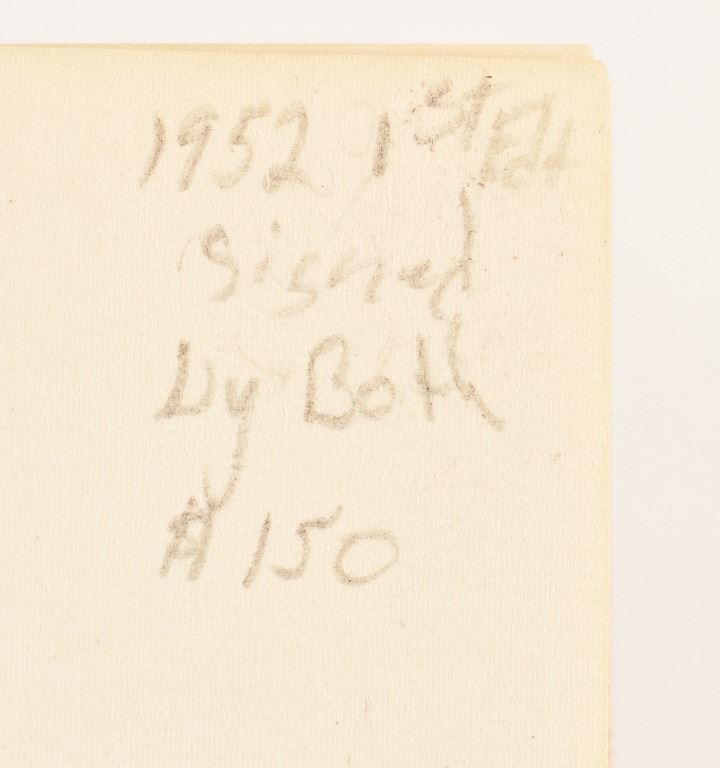 1952 1st Edt
Signed
by Both
A 150